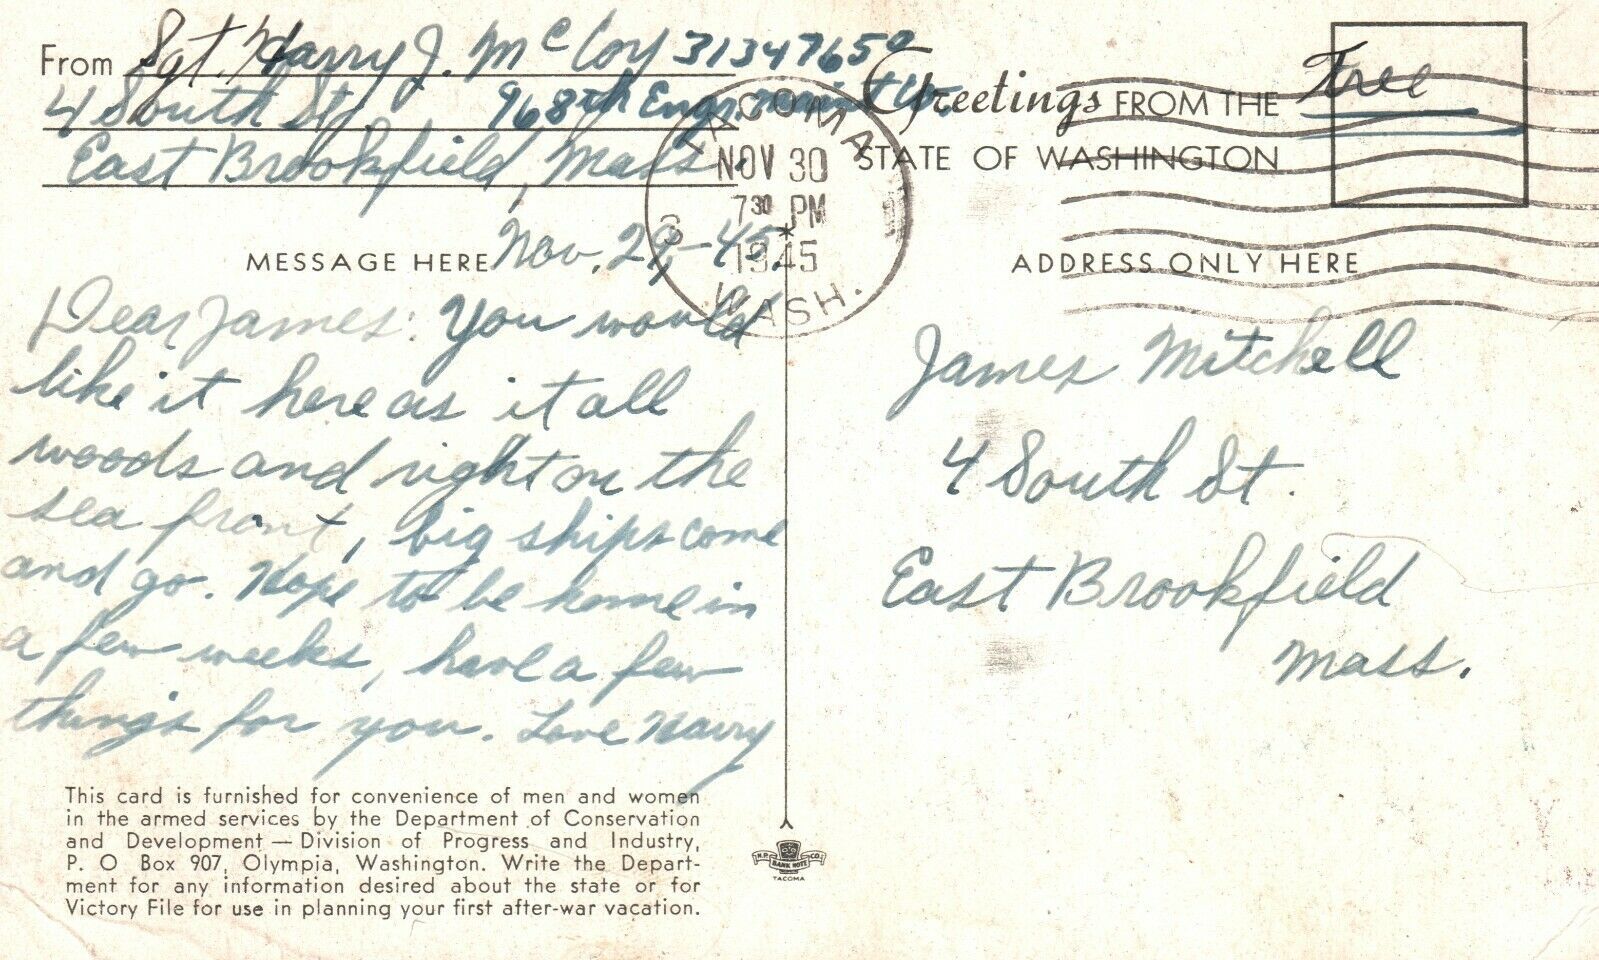 From Sgt. Harry J. McCoy 31347650
4 South St. 968th Engr. Maint Co.
East Brookfield, Mass.
Greetings FROM THE
STATE OF WASHINGTON
Free
TACOMA
NOV 30
7 30 PM
1945
WASH.
MESSAGE HERE Nov. 29-45.
ADDRESS ONLY HERE
Dear James: You would
like it here as it all
woods and right on the
sea front, big ships come
and go. Hope to be home in
a few weeks, have a few
things for you. Love Harry
James Mitchell
4 South St.
East Brookfield
Mass.
This card is furnished for convenience of men and women
in the armed services by the Department of Conservation
and Development — Division of Progress and Industry,
P. O Box 907, Olympia, Washington. Write the Depart-
ment for any information desired about the state or for
Victory File for use in planning your first after-war vacation.
BANK NOTE CO.
TACOMA